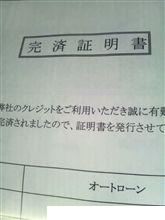 完済証明書
弊社のクレジットをご利用いただき誠に有難
完済されましたので、証明書を発行させて
オートローン